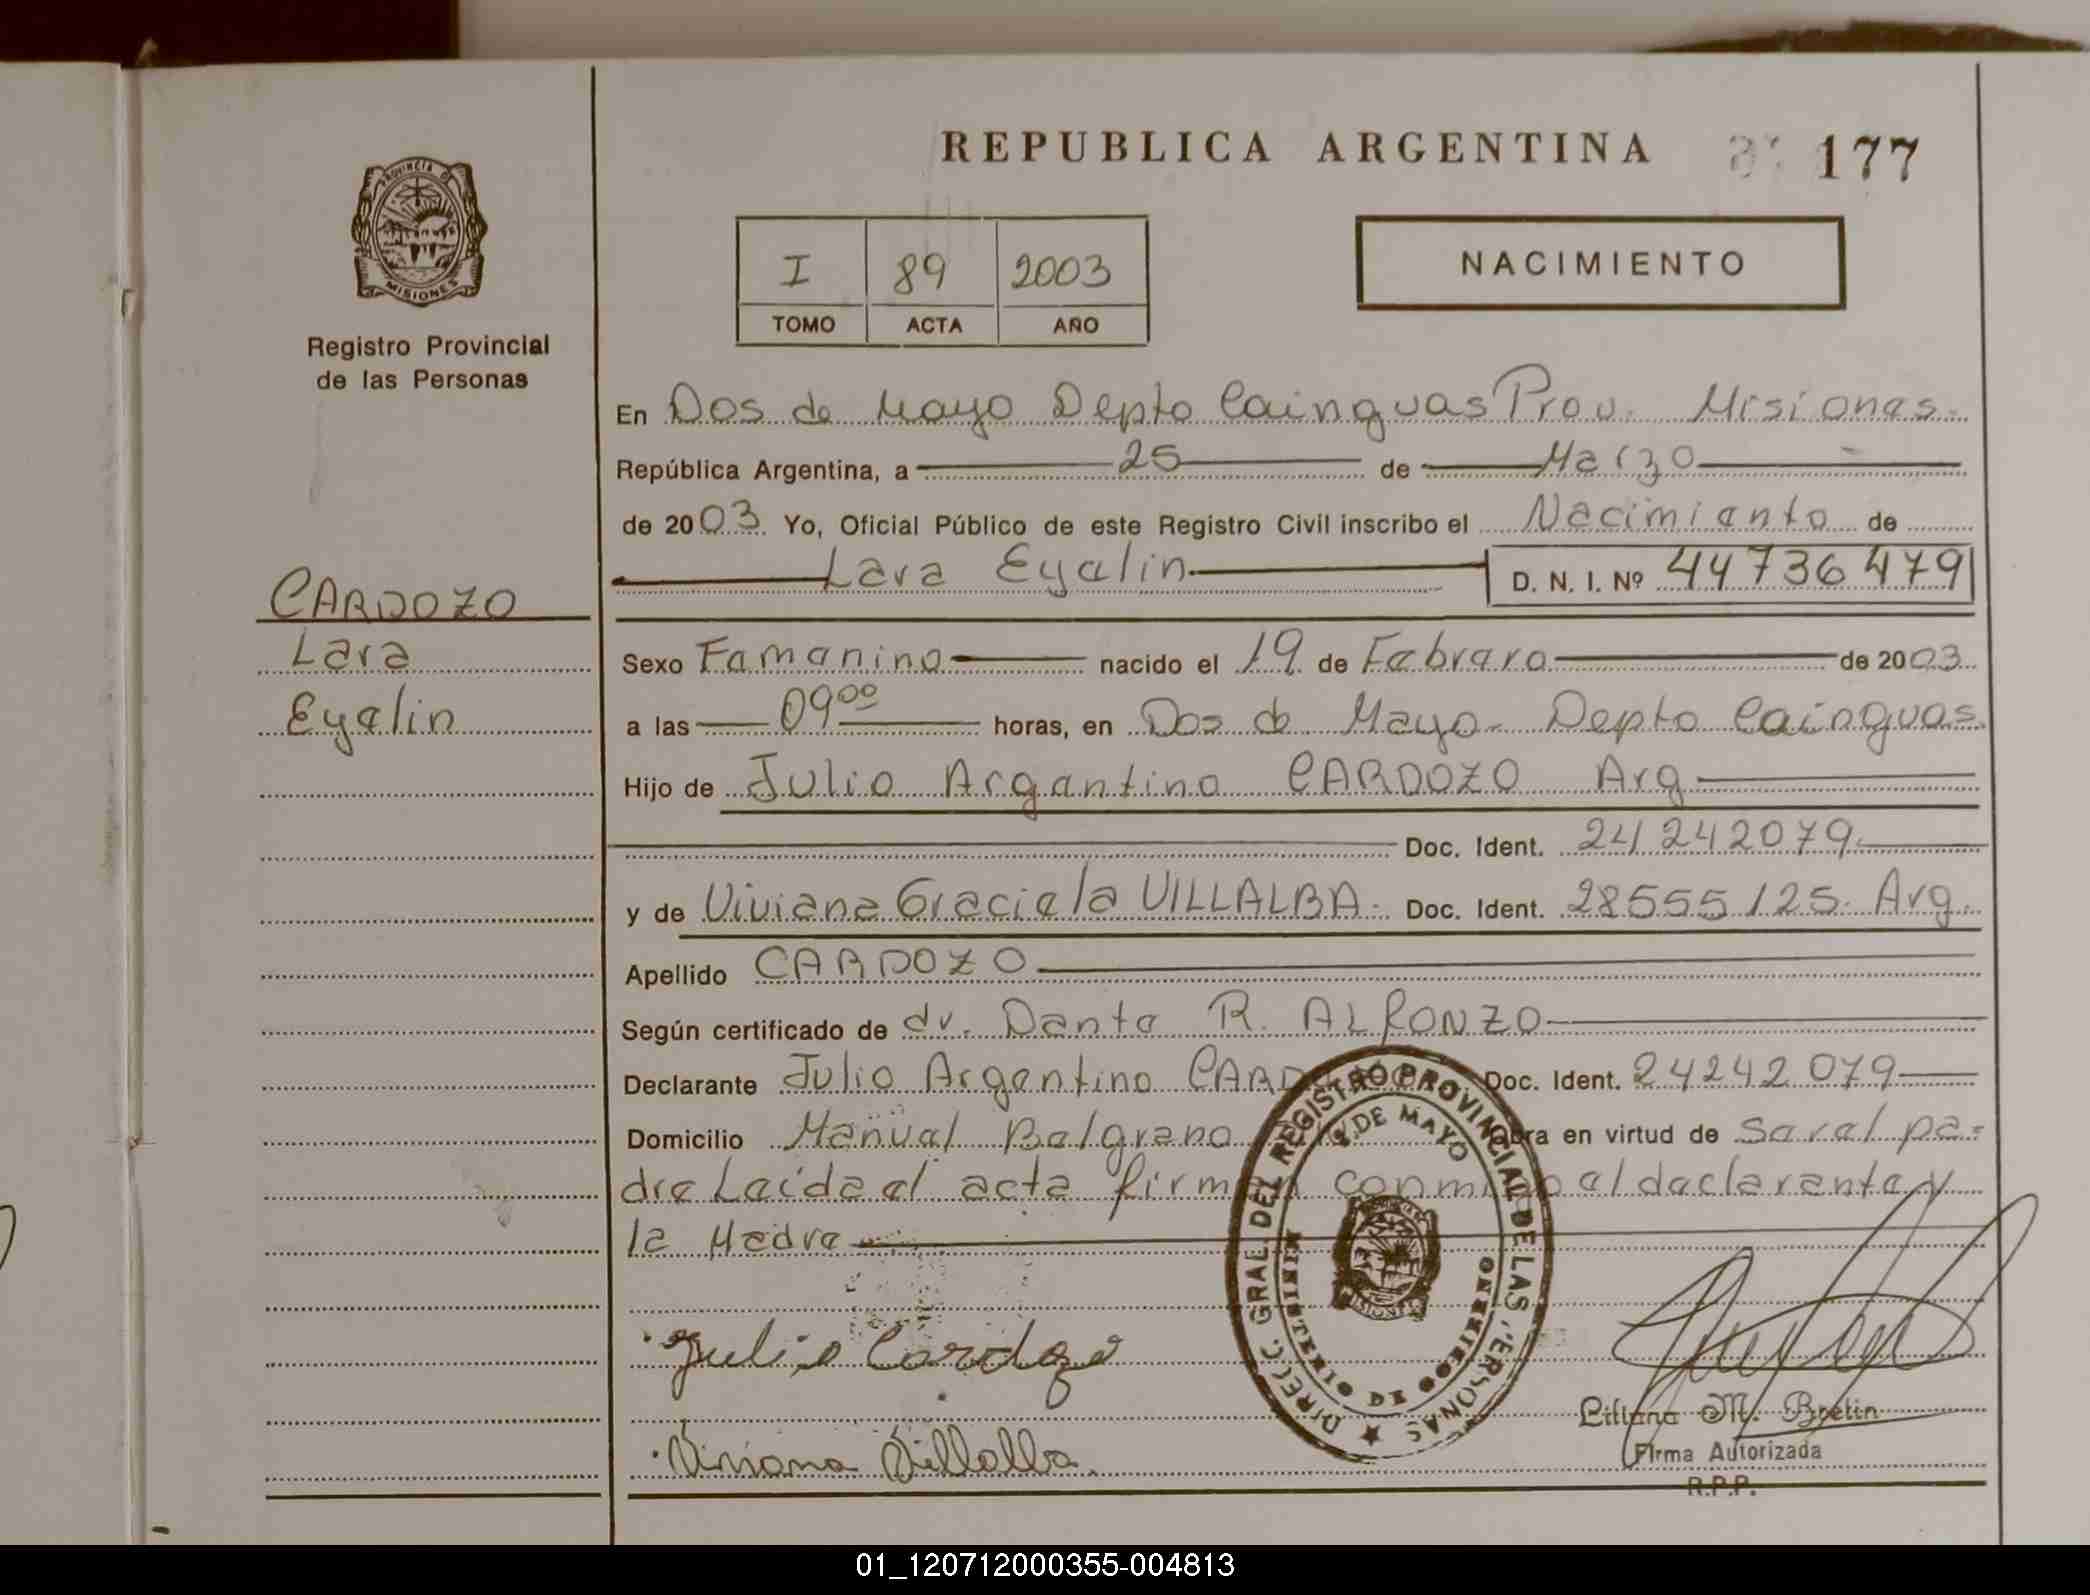 REPUBLICA ARGENTINA 177
PROVINCIA DE
MISIONES
Registro Provincial
de las Personas
I 89 2003
TOMO ACTA AÑO
NACIMIENTO
En Dos de Mayo Depto Cainguas Prov. Misiones.
República Argentina, a 25 de Marzo
de 2003. Yo, Oficial Público de este Registro Civil inscribo el Nacimiento de
Lara Eyelin D. N. I. Nº 44736479
CARDOZO
Lara
Eyelin
Sexo Femenino nacido el 19 de Febrero de 2003
a las 09 00 horas, en Dos de Mayo - Depto Cainguas.
Hijo de Julio Argentino CARDOZO Arg
Doc. Ident. 24242079
y de Viviana Graciela VILLALBA. Doc. Ident. 28555125. Arg.
Apellido CARDOZO
Según certificado de dr. Dante R. ALFONZO
Declarante Julio Argentino Doc. Ident. 24242079
Domicilio Manuel Belgrano Obra en virtud de Ser el pa=
dre Leída el acta conmigo el declarante y
la Madre
DIREC. GRAL. DEL REGISTRO PROVINCIAL DE LAS PERSONAS
2 DE MAYO
MINISTERIO DE GOBIERNO
Julio Cardozo
Viviana Villalba.
Liliana M. Brelin
Firma Autorizada
R.P.P.
01_120712000355-004813